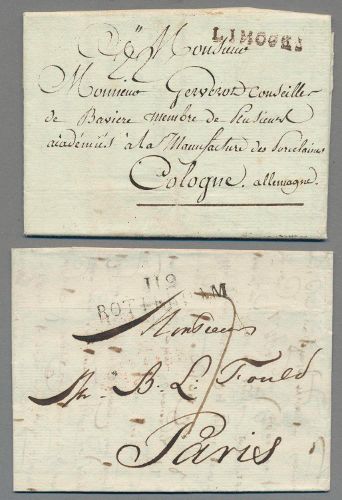 A Monsieur
LIMOGES
Monsieur Gerverot Conseiller
de Baviere membre de Plusieurs
académies à la Manufacture des Porcelaines
Cologne. allemagne.
118
ROTTERDAM
Monsieur
B. L. Fould
Paris